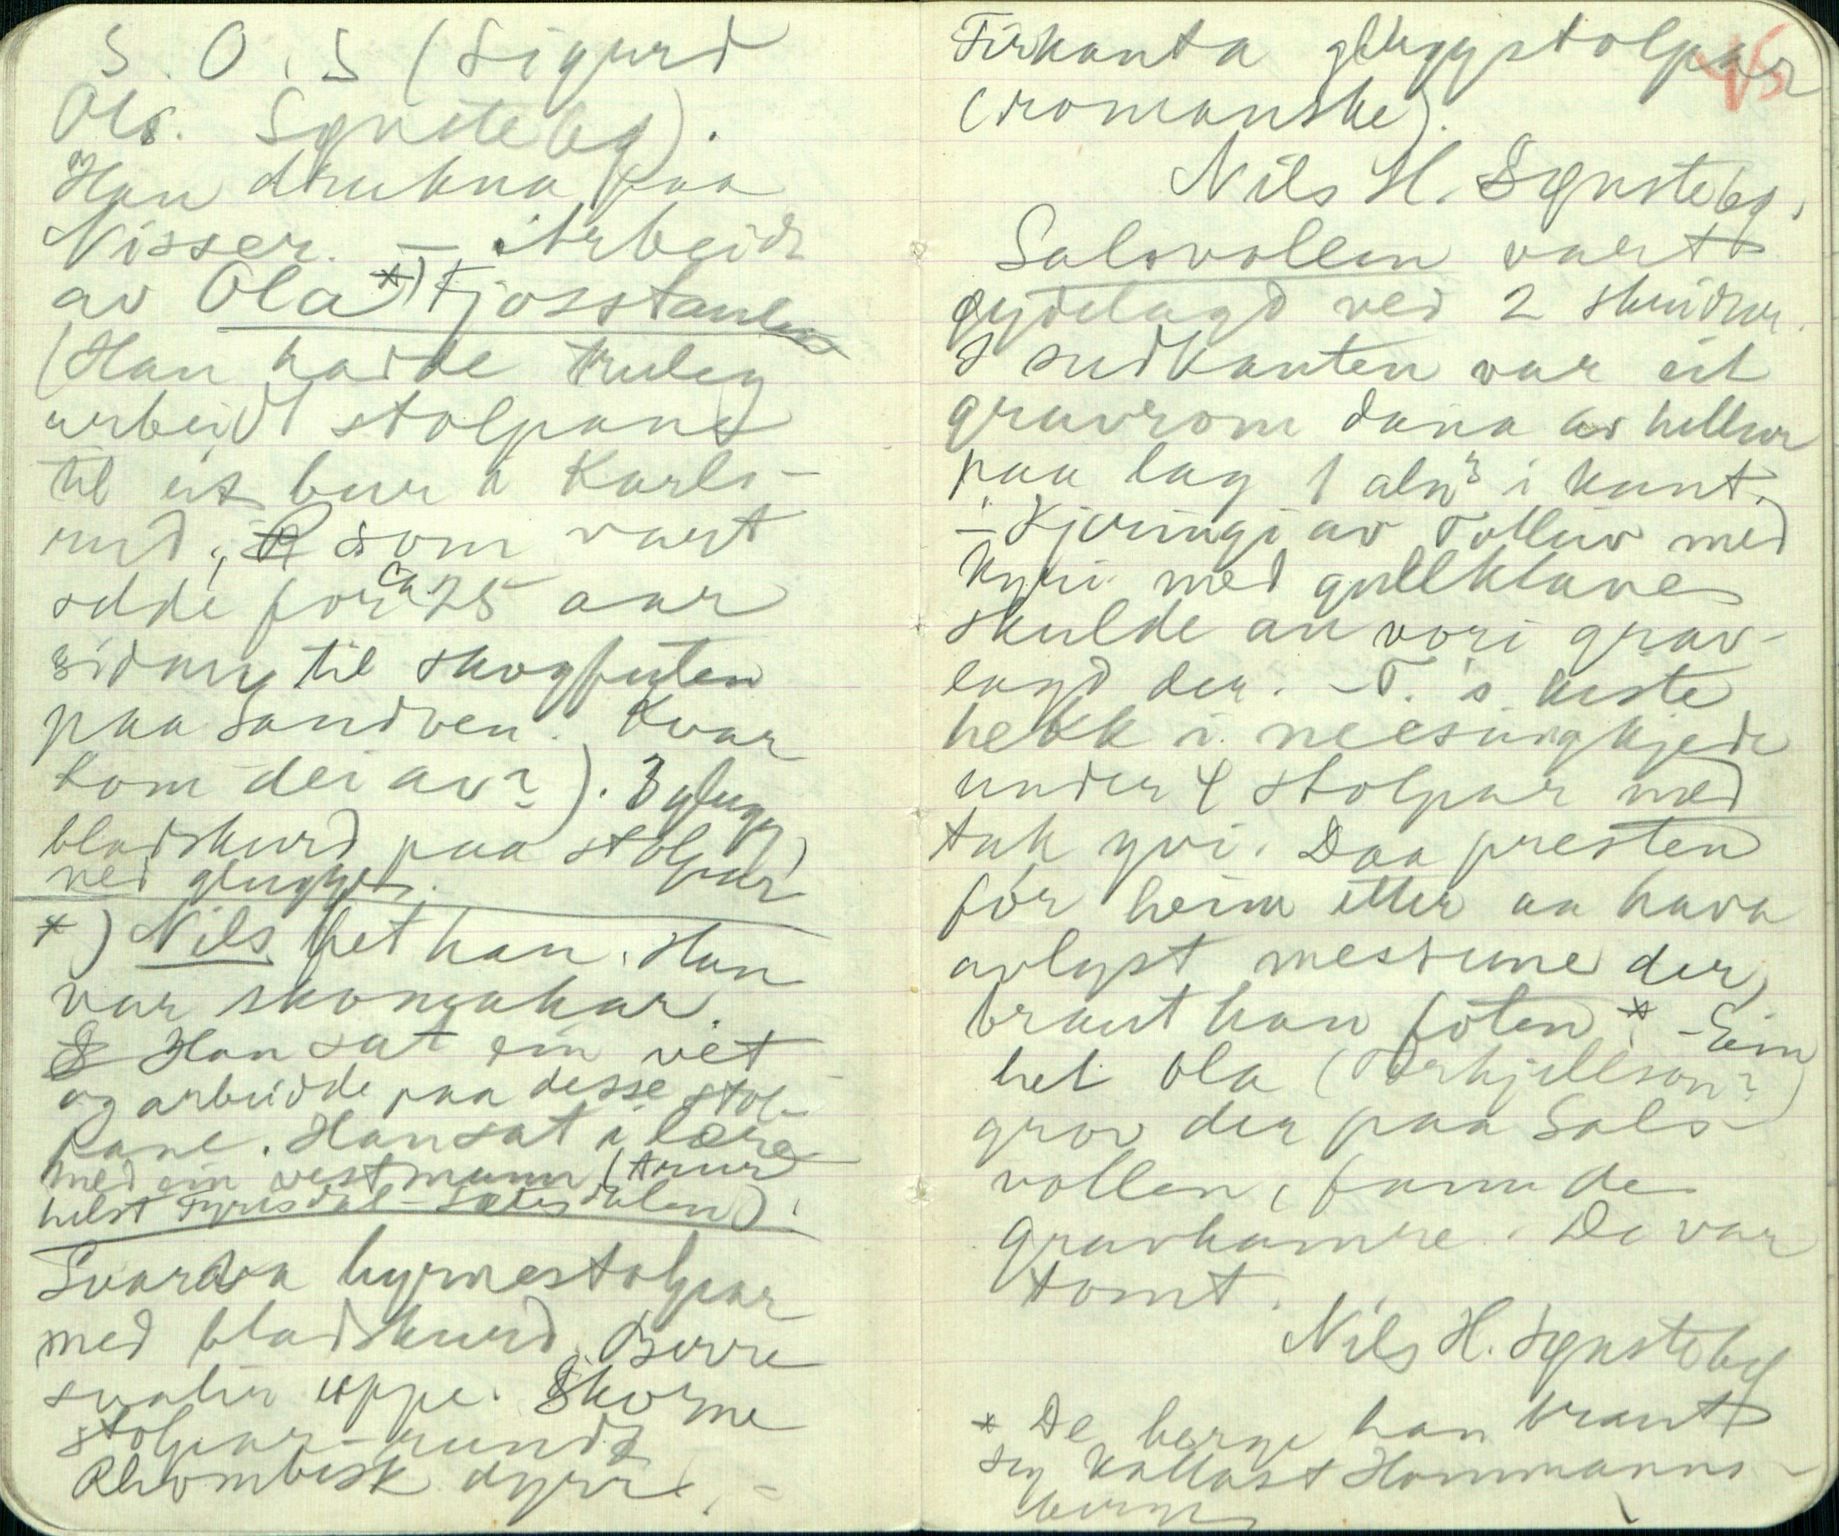 S. O. S (Sigurd
Ols. Synsteby).
Han drukna paa
Nisser. — Arbeidt
av Ola *) Fjosstaulen
(Han hadde truleg
arbeidt stolpane
til eit bur i Karls-
rud, som vart
selde for ca 25 aar
sidan til skogfuten
paa Sandven. Kvar
kom dei av?). 3 glugg
bladskurd paa stolpar
ved gluggen.
*) Nils het han. Han
var skomakar.
Han sat ein vet
og arbeidde paa desse stol-
pane. Han sat i lære
med ein vestmann (trur
helst Fyrisdal - Sætisdalen).
Svarva hyrnestolpar
med bladskurd. Berre
svalir uppe. Skorne
stolpar - runde
Rhombisk dyrri. -
Firkanta gluggstolpar
(romanske).
45
Nils H. Synsteby.
Salsvollen vart
øydelagd ved 2 skridur.
I sudkanten var eit
gravrom dana av hellur
paa lag 1 aln3 i kant.
- Kjeringi av Tolleiv med
kyri med gullklave
skulde an vori grav-
lagd der. - T.'s kiste
hekk i messingkjede
under 4 stolpar med
tak yvi. Daa presten
fór heim etter aa hava
avlyst messune der,
braut han foten *. - Ein
het Ola (Torkjellson?)
grov der paa Sals-
vollen, funn de
gravkamre. De var
tomt.
Nils H. Synsteby
* De berge han braut
seg kallast Hommanns-
berge